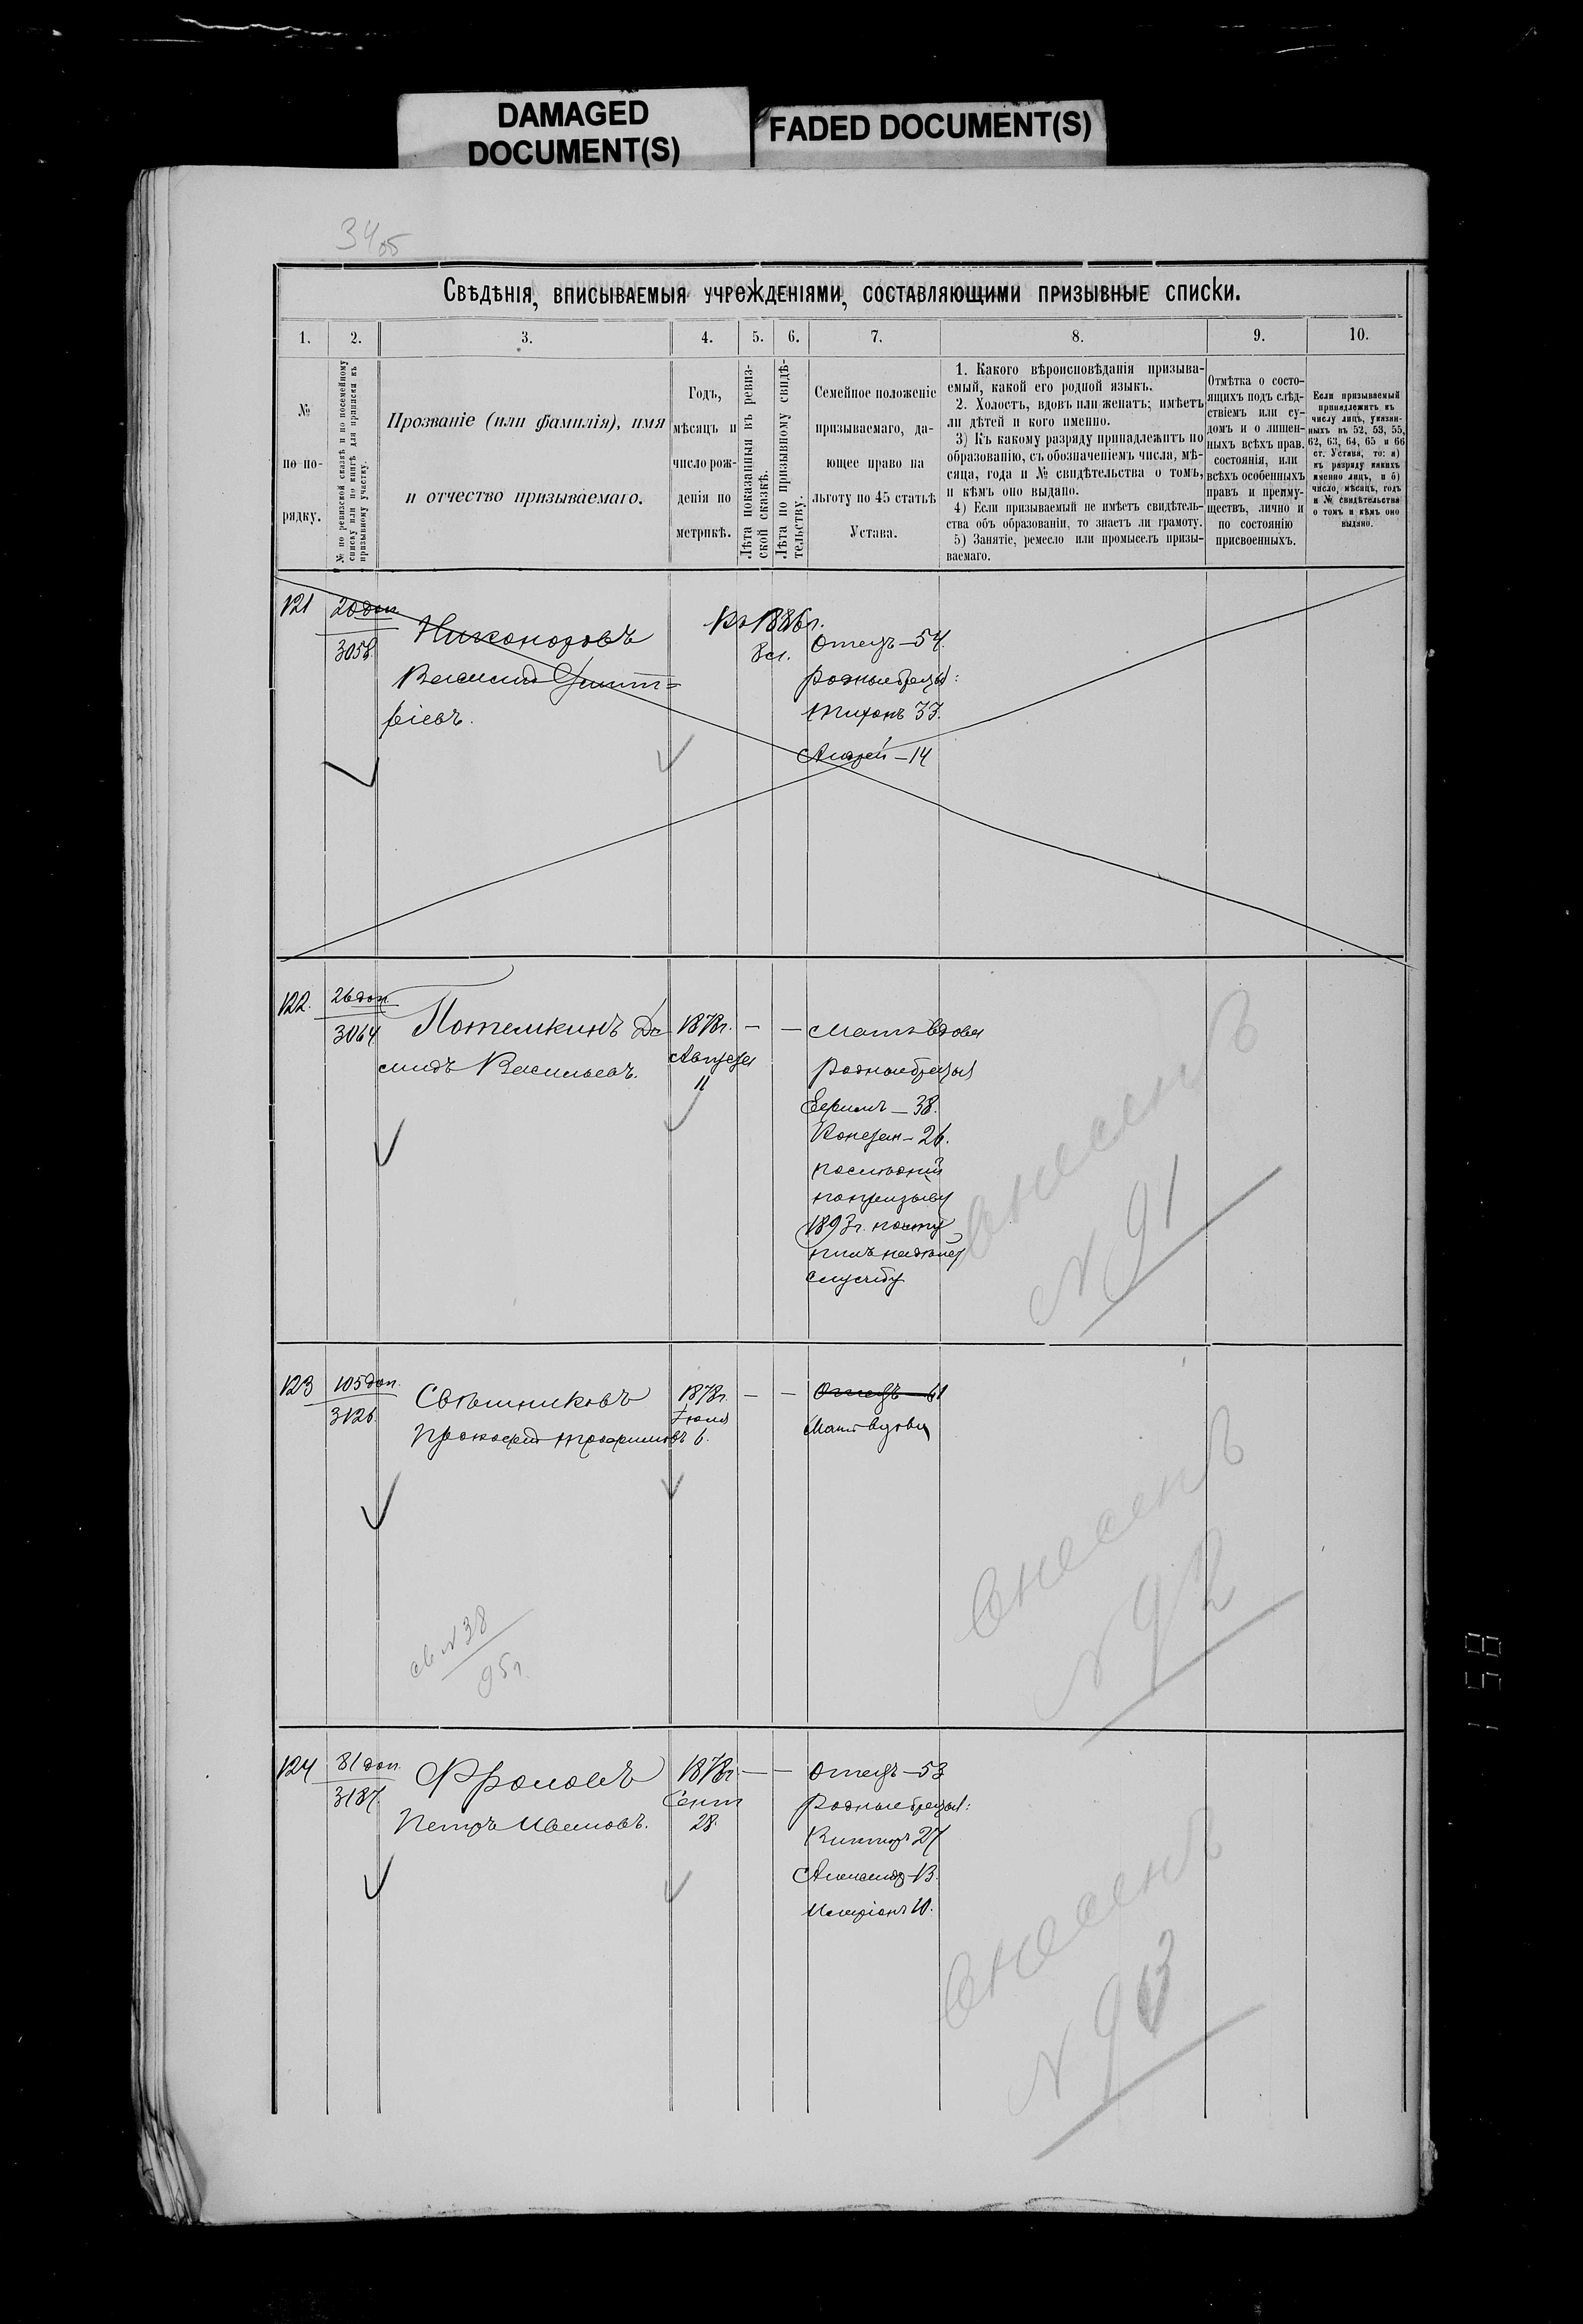 DAMAGED
DOCUMENT(S)
FADED DOCUMENT(S)
34об
Свѣдѣнія, вписываемыя учрежденіями, составляющими призывные списки.
1.
2.
3.
4.
5.
6.
7.
8.
9.
10.
№
по по-
рядку.
№ по ревизской сказкѣ и по посемейному
списку или по книгѣ для приписки къ
призывному участку.
Прозваніе (или фамилія), имя
и отчество призываемаго.
Годъ,
мѣсяцъ и
число рож-
денія по
метрикѣ.
Лѣта показанныя въ ревиз-
ской сказкѣ.
Лѣта по призывному свидѣ-
тельству.
Семейное положеніе
призываемаго, да-
ющее право на
льготу по 45 статьѣ
Устава.
1. Какого вѣроисповѣданія призыва-
емый, какой его родной языкъ.
2. Холостъ, вдовъ или женатъ; имѣетъ
ли дѣтей и кого именно.
3) Къ какому разряду принадлежитъ по
образованію, съ обозначеніемъ числа, мѣ-
сяца, года и № свидѣтельства о томъ,
и кѣмъ оно выдано.
4) Если призываемый не имѣетъ свидѣтель-
ства объ образованіи, то знаетъ ли грамоту.
5) Занятіе, ремесло или промыселъ призы-
ваемаго.
Отмѣтка о состо-
ящихъ подъ слѣд-
ствіемъ или су-
домъ и о лишен-
ныхъ всѣхъ прав.
состоянія, или
всѣхъ особенныхъ
правъ и преиму-
ществъ, лично и
по состоянію
присвоенныхъ.
Если призываемый
принадлежитъ къ
числу лицъ, указан-
ныхъ въ 52, 53, 55,
62, 63, 64, 65 и 66
ст. Устава, то: а)
къ разряду какихъ
именно лицъ, и б)
число, мѣсяцъ, годъ
и № свидѣтельства
о томъ и кѣмъ оно
выдано.
121
20 доп.
3058.
Никоноровъ
Василій Дмит=
ріевъ.
Въ 1886 г.
8 л.
Отецъ — 54.
родные братья:
Тихонъ 33.
Андрей — 14
122.
26 доп
3064
Потемкинъ Де
мидъ Васильевъ.
1878 г.
Августа
11
— —
Мать вдова
родные братья
Ефимъ — 38.
Конезан — 26.
последній
по призыву
1893 г. посту
пилъ на дѣйс
службу
внесенъ
N 91
123
105 доп.
3126
Свѣшниковъ
Прокофій Трофимовъ
1878 г.
Іюля
6.
— —
Отецъ — 61
Мать вдова
св N 38
95 г.
внесенъ
N 92
124
81 доп.
3187.
Фроловъ
Петръ Ивановъ.
1878 г.
Сент
28.
— —
Отецъ — 53
родные братья:
Викторъ 27
Александр — 13.
Иларіонъ 10.
внесенъ
N 93
158